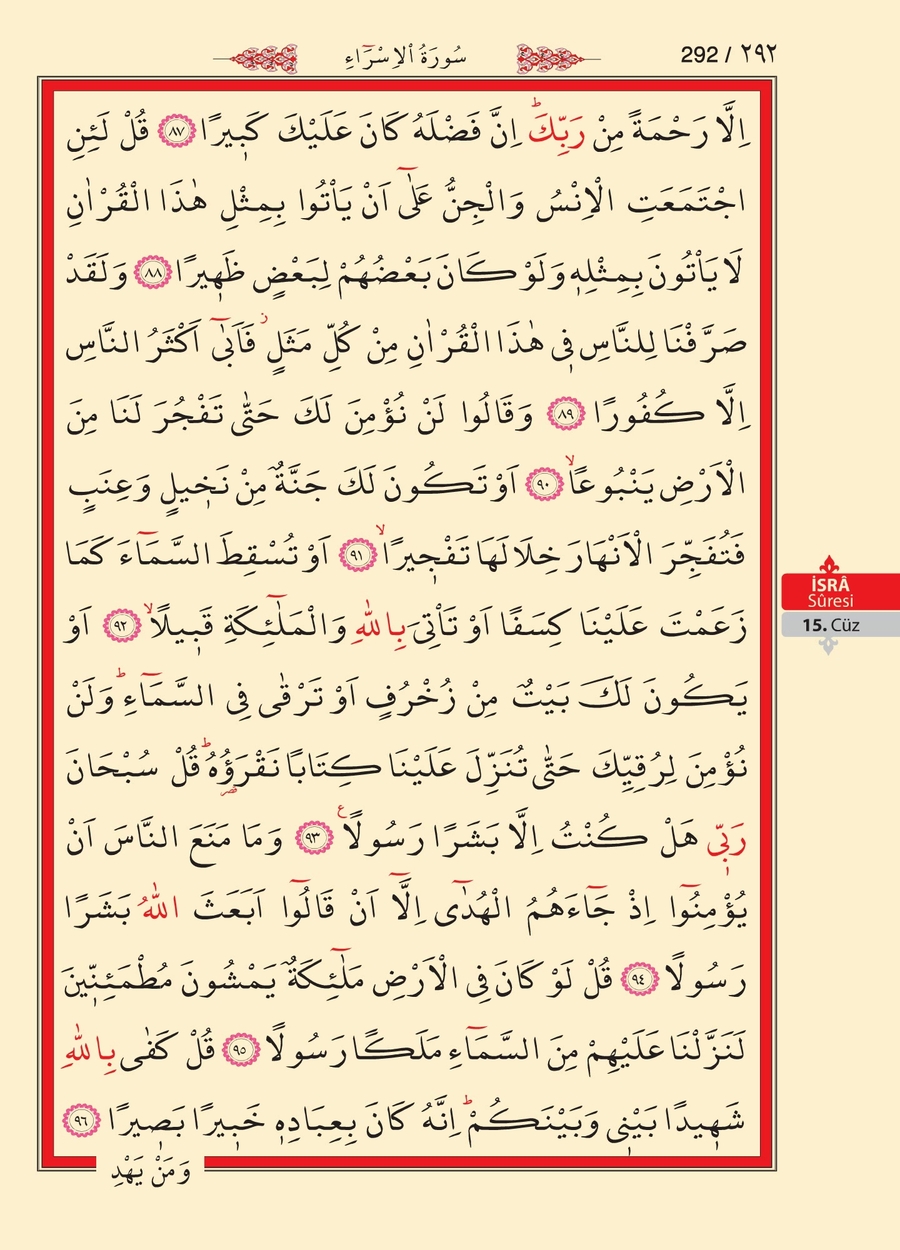 سُورَةُ الْاِسْرَٓاءِ
292 / ٢٩٢
اِلَّا رَحْمَةً مِنْ رَبِّكَۜ اِنَّ فَضْلَهُ كَانَ عَلَيْكَ كَب۪يرًا ﴿٨٧﴾ قُلْ لَئِنِ
اجْتَمَعَتِ الْاِنْسُ وَالْجِنُّ عَلٰٓى اَنْ يَأْتُوا بِمِثْلِ هٰذَا الْقُرْاٰنِ
لَا يَأْتُونَ بِمِثْلِه۪ وَلَوْ كَانَ بَعْضُهُمْ لِبَعْضٍ ظَه۪يرًا ﴿٨٨﴾ وَلَقَدْ
صَرَّفْنَا لِلنَّاسِ ف۪ي هٰذَا الْقُرْاٰنِ مِنْ كُلِّ مَثَلٍۘ فَاَبٰٓى اَكْثَرُ النَّاسِ
اِلَّا كُفُورًا ﴿٨٩﴾ وَقَالُوا لَنْ نُؤْمِنَ لَكَ حَتّٰى تَفْجُرَ لَنَا مِنَ
الْاَرْضِ يَنْبُوعًاۙ ﴿٩٠﴾ اَوْ تَكُونَ لَكَ جَنَّةٌ مِنْ نَخ۪يلٍ وَعِنَبٍ
فَتُفَجِّرَ الْاَنْهَارَ خِلَالَهَا تَفْج۪يرًاۙ ﴿٩١﴾ اَوْ تُسْقِطَ السَّمَٓاءَ كَمَا
زَعَمْتَ عَلَيْنَا كِسَفًا اَوْ تَأْتِيَ بِاللّٰهِ وَالْمَلٰٓئِكَةِ قَب۪يلًاۙ ﴿٩٢﴾ اَوْ
يَكُونَ لَكَ بَيْتٌ مِنْ زُخْرُفٍ اَوْ تَرْقٰى فِي السَّمَٓاءِۜ وَلَنْ
نُؤْمِنَ لِرُقِيِّكَ حَتّٰى تُنَزِّلَ عَلَيْنَا كِتَابًا نَقْرَؤُ۬هُۜ قُلْ سُبْحَانَ
رَبّ۪ي هَلْ كُنْتُ اِلَّا بَشَرًا رَسُولًا۟ ﴿٩٣﴾ وَمَا مَنَعَ النَّاسَ اَنْ
يُؤْمِنُٓوا اِذْ جَٓاءَهُمُ الْهُدٰٓى اِلَّٓا اَنْ قَالُٓوا اَبَعَثَ اللّٰهُ بَشَرًا
رَسُولًا ﴿٩٤﴾ قُلْ لَوْ كَانَ فِي الْاَرْضِ مَلٰٓئِكَةٌ يَمْشُونَ مُطْمَئِنّ۪ينَ
لَنَزَّلْنَا عَلَيْهِمْ مِنَ السَّمَٓاءِ مَلَكًا رَسُولًا ﴿٩٥﴾ قُلْ كَفٰى بِاللّٰهِ
شَه۪يدًا بَيْن۪ي وَبَيْنَكُمْۜ اِنَّهُ كَانَ بِعِبَادِه۪ خَب۪يرًا بَص۪يرًا ﴿٩٦﴾
وَمَنْ يَهْدِ
İSRÂ
Sûresi
15. Cüz